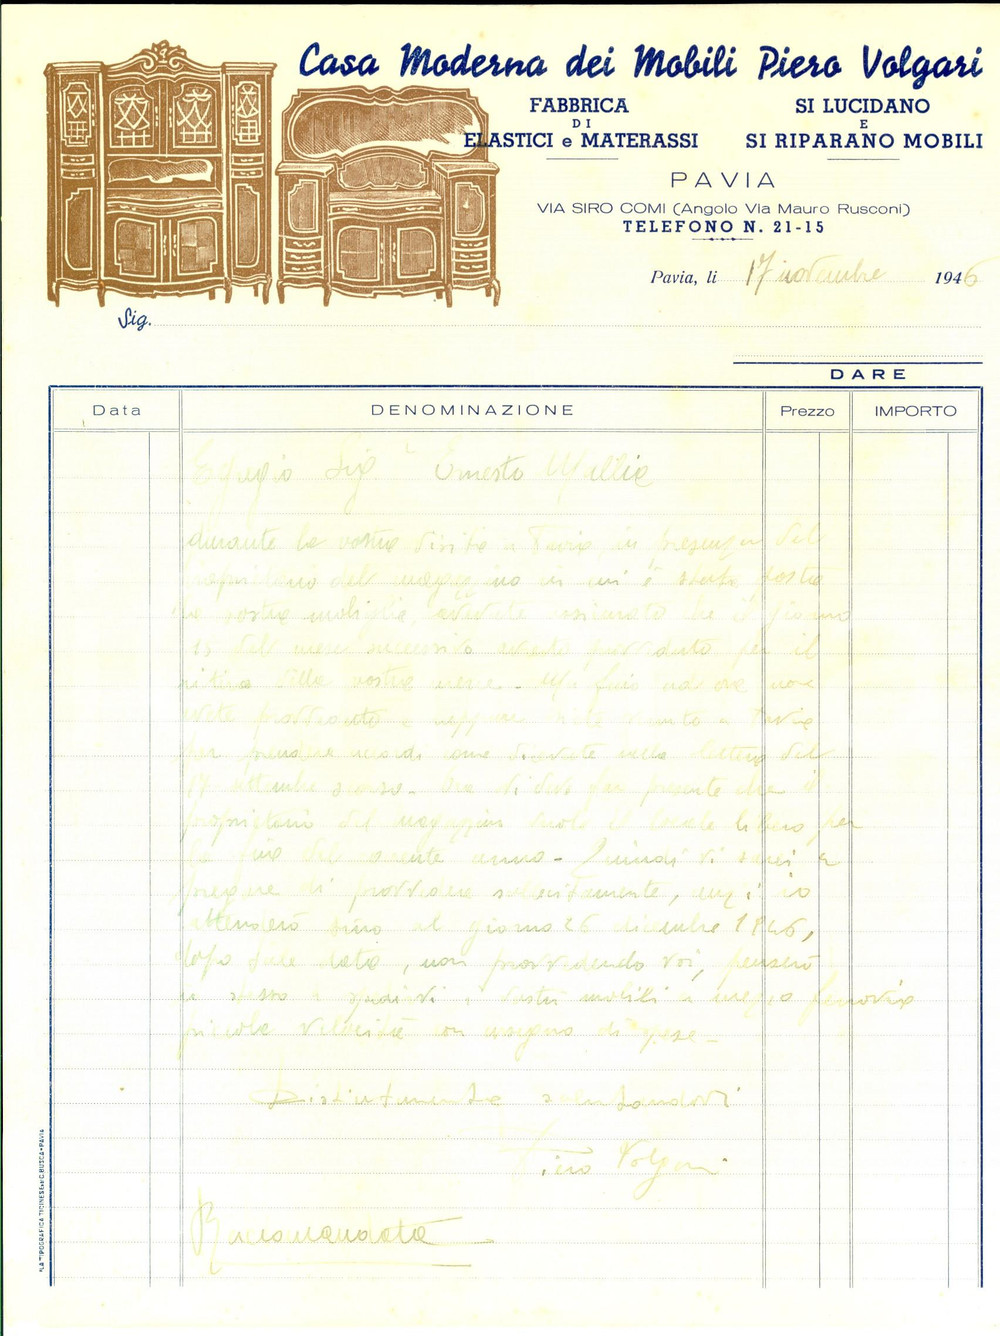 Casa Moderna dei Mobili Piero Volgari
FABBRICA
DI
ELASTICI e MATERASSI
SI LUCIDANO
E
SI RIPARANO MOBILI
PAVIA
VIA SIRO COMI (Angolo Via Mauro Rusconi)
TELEFONO N. 21-15
Pavia, li 17 novembre 1946
Sig.
DARE
Data DENOMINAZIONE Prezzo IMPORTO
Egregio Sig. Ernesto
durante la vostra visita a Pavia, in presenza del
proprietario del magazzino in cui è stata posta
la vostra mobiglia, avevate assicurato che il giorno
15 del mese successivo avreste provveduto per il
ritiro della vostra merce. fino ad ora non
avete provveduto e neppure siete venuto a Pavia
per prendere accordi come dicevate nella lettera del
17 settembre scorso. Ora vi devo far presente che il
proprietario del magazzino vuole il locale libero per
la fine del corrente anno - Quindi vi sarei a
pregare di provvedere sollecitamente, anzi io
attenderò fino al giorno 26 dicembre 1946,
dopo tale data, non provvedendo voi, penserò
a spedirvi i vostri mobili a mezzo ferrovia
piccola velocità con assegno di spese -
Distintamente salutandovi
Piero Volgari
Raccomandata
"LA TIPOGRAFICA TICINESE" di C. BUSCA - PAVIA